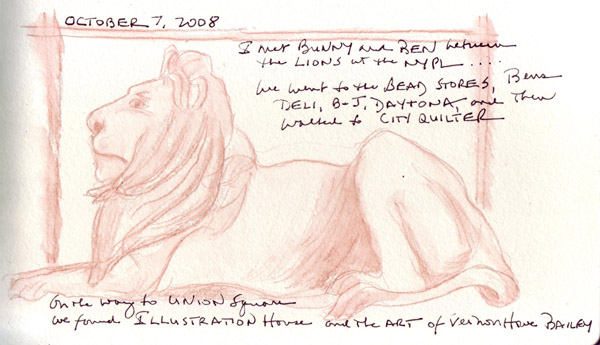 OCTOBER 7, 2008
I met BUNNY and BEN between
the LIONS at the NYPL ....
We went to the BEAD STORES, Bens
DELI, B-J, DAYTONA, and Then
walked to CITY QUILTER
On the way to UNION Square
we found ILLUSTRATION House and the ART of Vernon Howe BAILEY